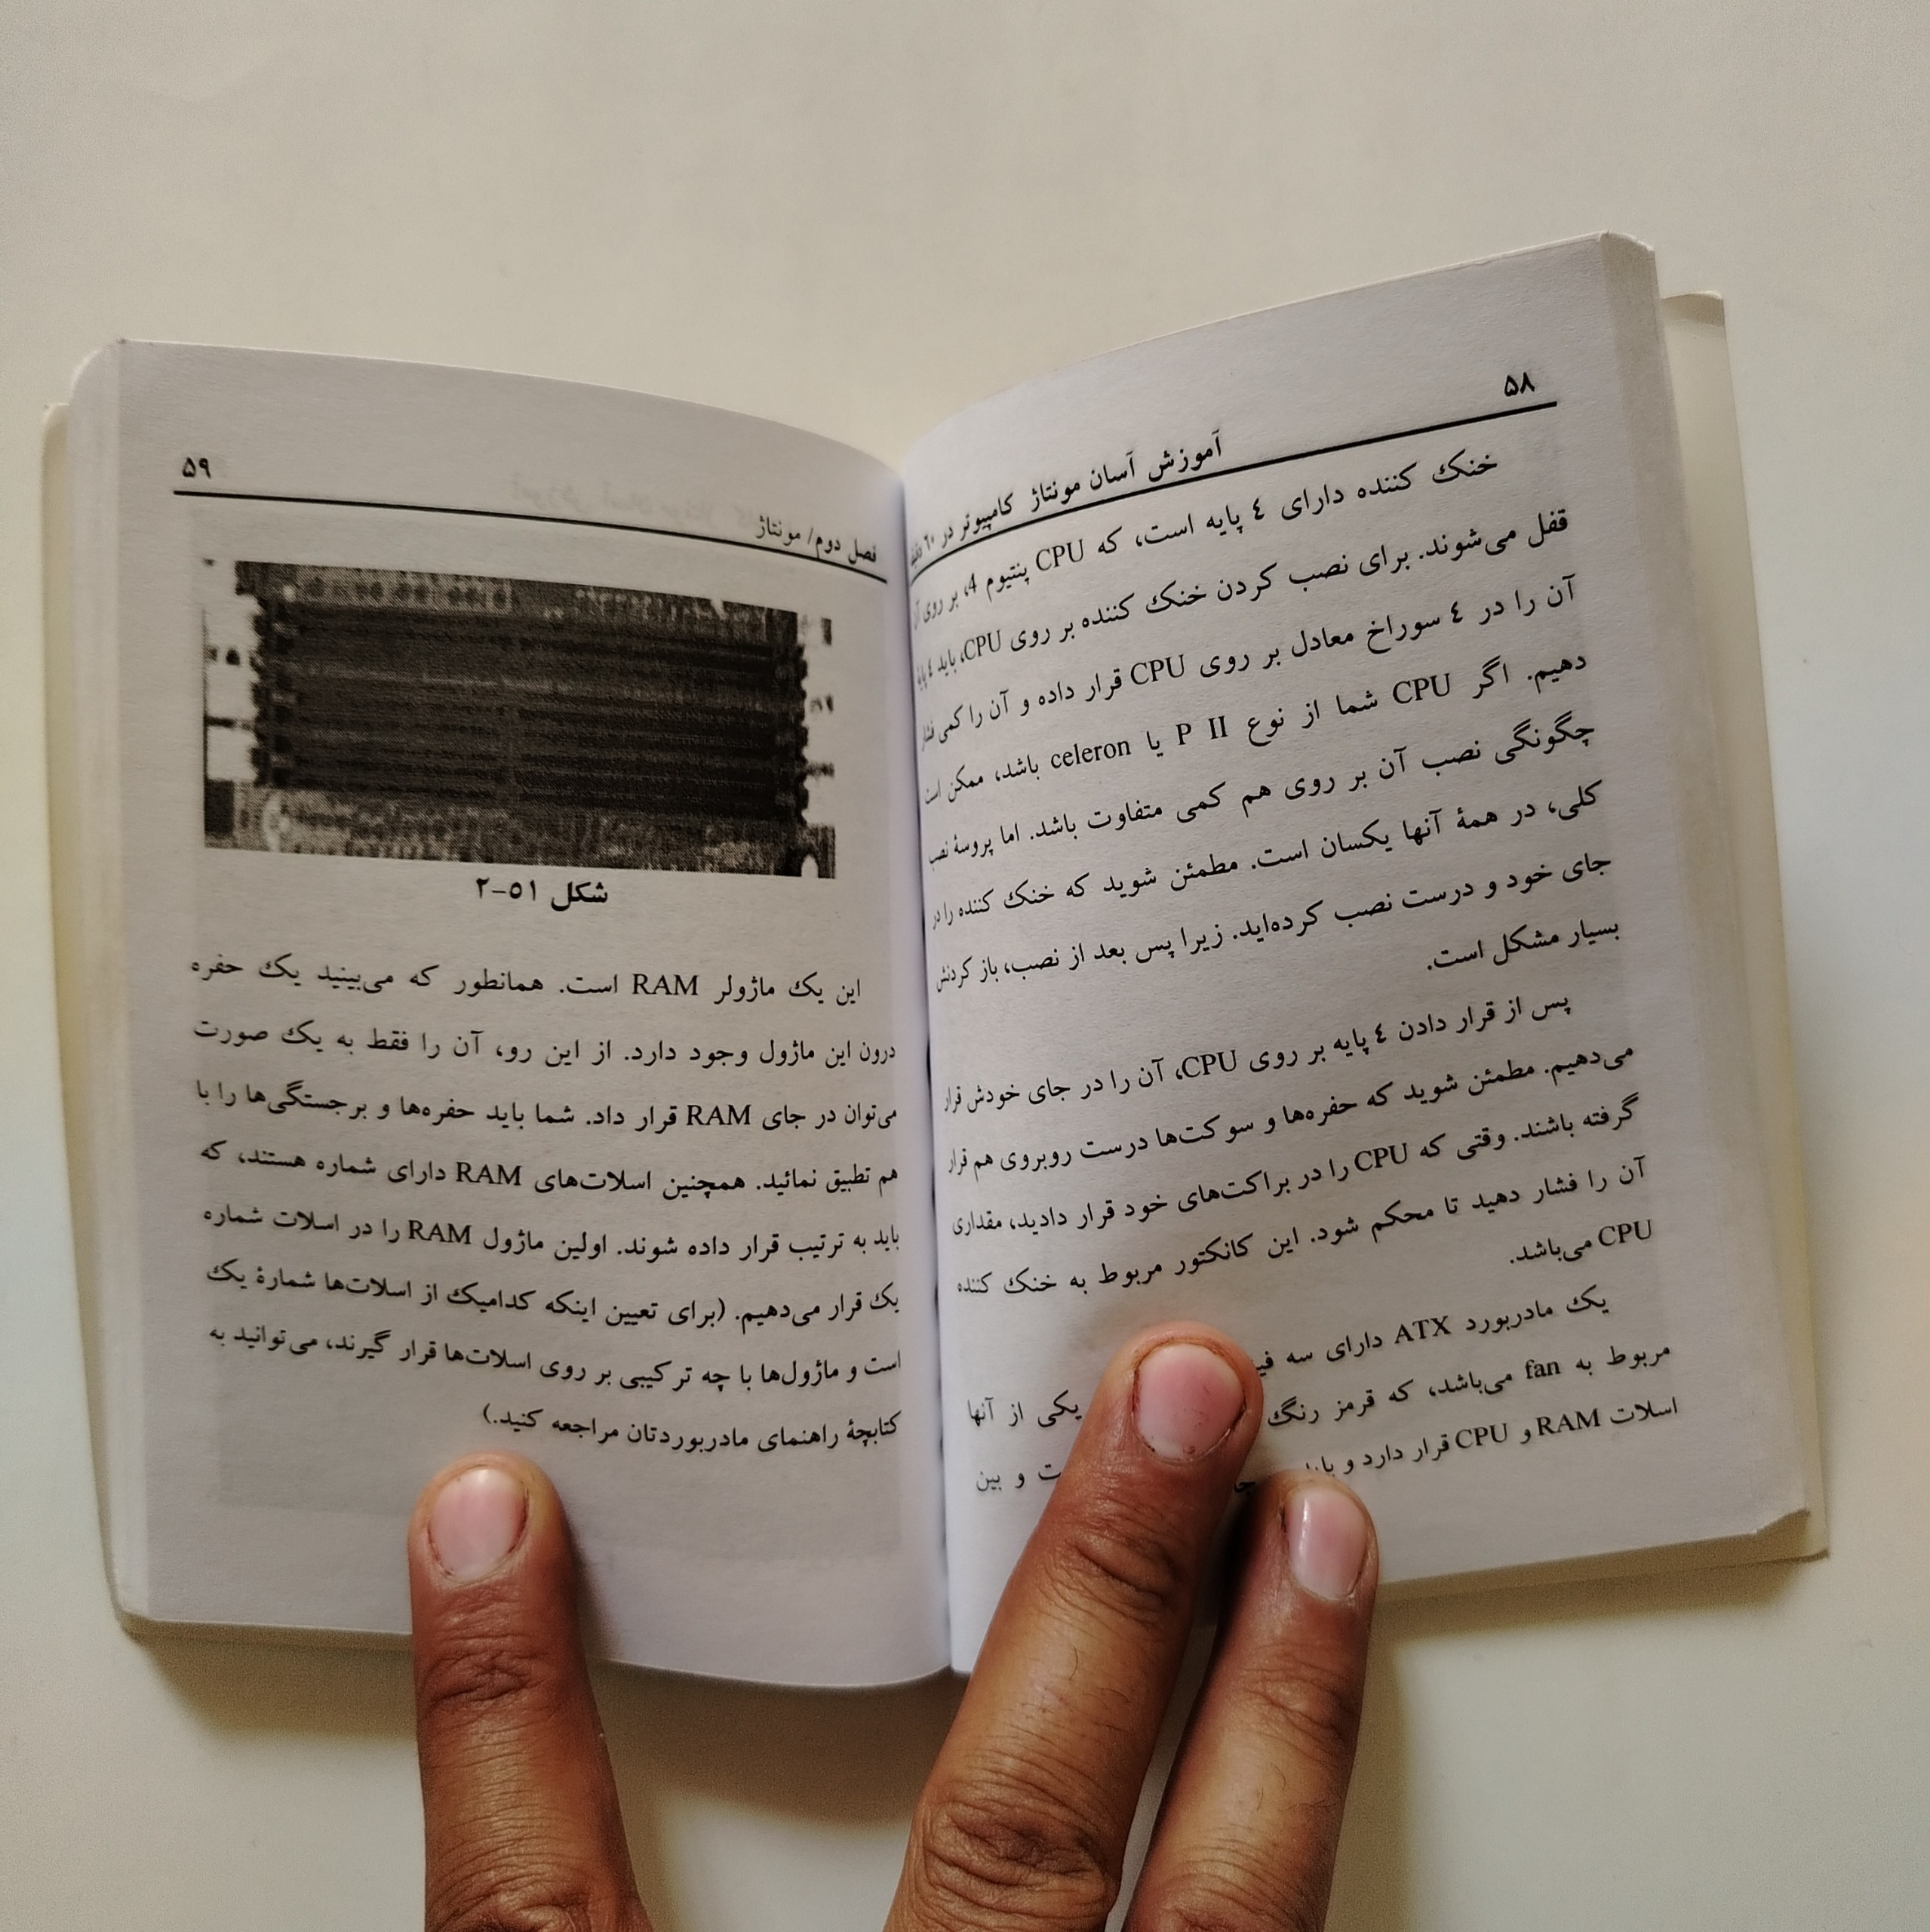 ۵۸
آموزش آسان مونتاژ کامپیوتر در ٦۰ دقیقه
خنک کننده دارای ٤ پایه است، که CPU پنتیوم 4، بر روی آن
قفل می‌شوند. برای نصب کردن خنک کننده بر روی CPU، باید ٤ پایهٔ
آن را در ٤ سوراخ معادل بر روی CPU قرار داده و آن را کمی فشار
دهیم. اگر CPU شما از نوع P II یا celeron باشد، ممکن است
چگونگی نصب آن بر روی هم کمی متفاوت باشد. اما پروسهٔ نصب
کلی، در همهٔ آنها یکسان است. مطمئن شوید که خنک کننده را در
جای خود و درست نصب کرده‌اید. زیرا پس بعد از نصب، باز کردنش
بسیار مشکل است.
پس از قرار دادن ٤ پایه بر روی CPU، آن را در جای خودش قرار
می‌دهیم. مطمئن شوید که حفره‌ها و سوکت‌ها درست روبروی هم قرار
گرفته باشند. وقتی که CPU را در براکت‌های خود قرار دادید، مقداری
آن را فشار دهید تا محکم شود. این کانکتور مربوط به خنک کننده
CPU می‌باشد.
یک مادربورد ATX دارای سه
مربوط به fan می‌باشد، که قرمز رنگ یکی از آنها
اسلات RAM و CPU قرار دارد و و بین
۵۹
فصل دوم/ مونتاژ
شکل ۵۱-۲
این یک ماژولر RAM است. همانطور که می‌بینید یک حفره
درون این ماژول وجود دارد. از این رو، آن را فقط به یک صورت
می‌توان در جای RAM قرار داد. شما باید حفره‌ها و برجستگی‌ها را با
هم تطبیق نمائید. همچنین اسلات‌های RAM دارای شماره هستند، که
باید به ترتیب قرار داده شوند. اولین ماژول RAM را در اسلات شماره
یک قرار می‌دهیم. (برای تعیین اینکه کدامیک از اسلات‌ها شمارهٔ یک
است و ماژول‌ها با چه ترکیبی بر روی اسلات‌ها قرار گیرند، می‌توانید به
کتابچهٔ راهنمای مادربوردتان مراجعه کنید.)